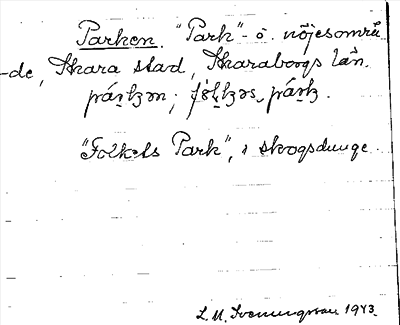 Parken. "Park"- o. nöjesområ
-de, Skara stad, Skaraborgs län.
"Folkets Park", i skogsdunge.
L. M. Svenungsson 1943.